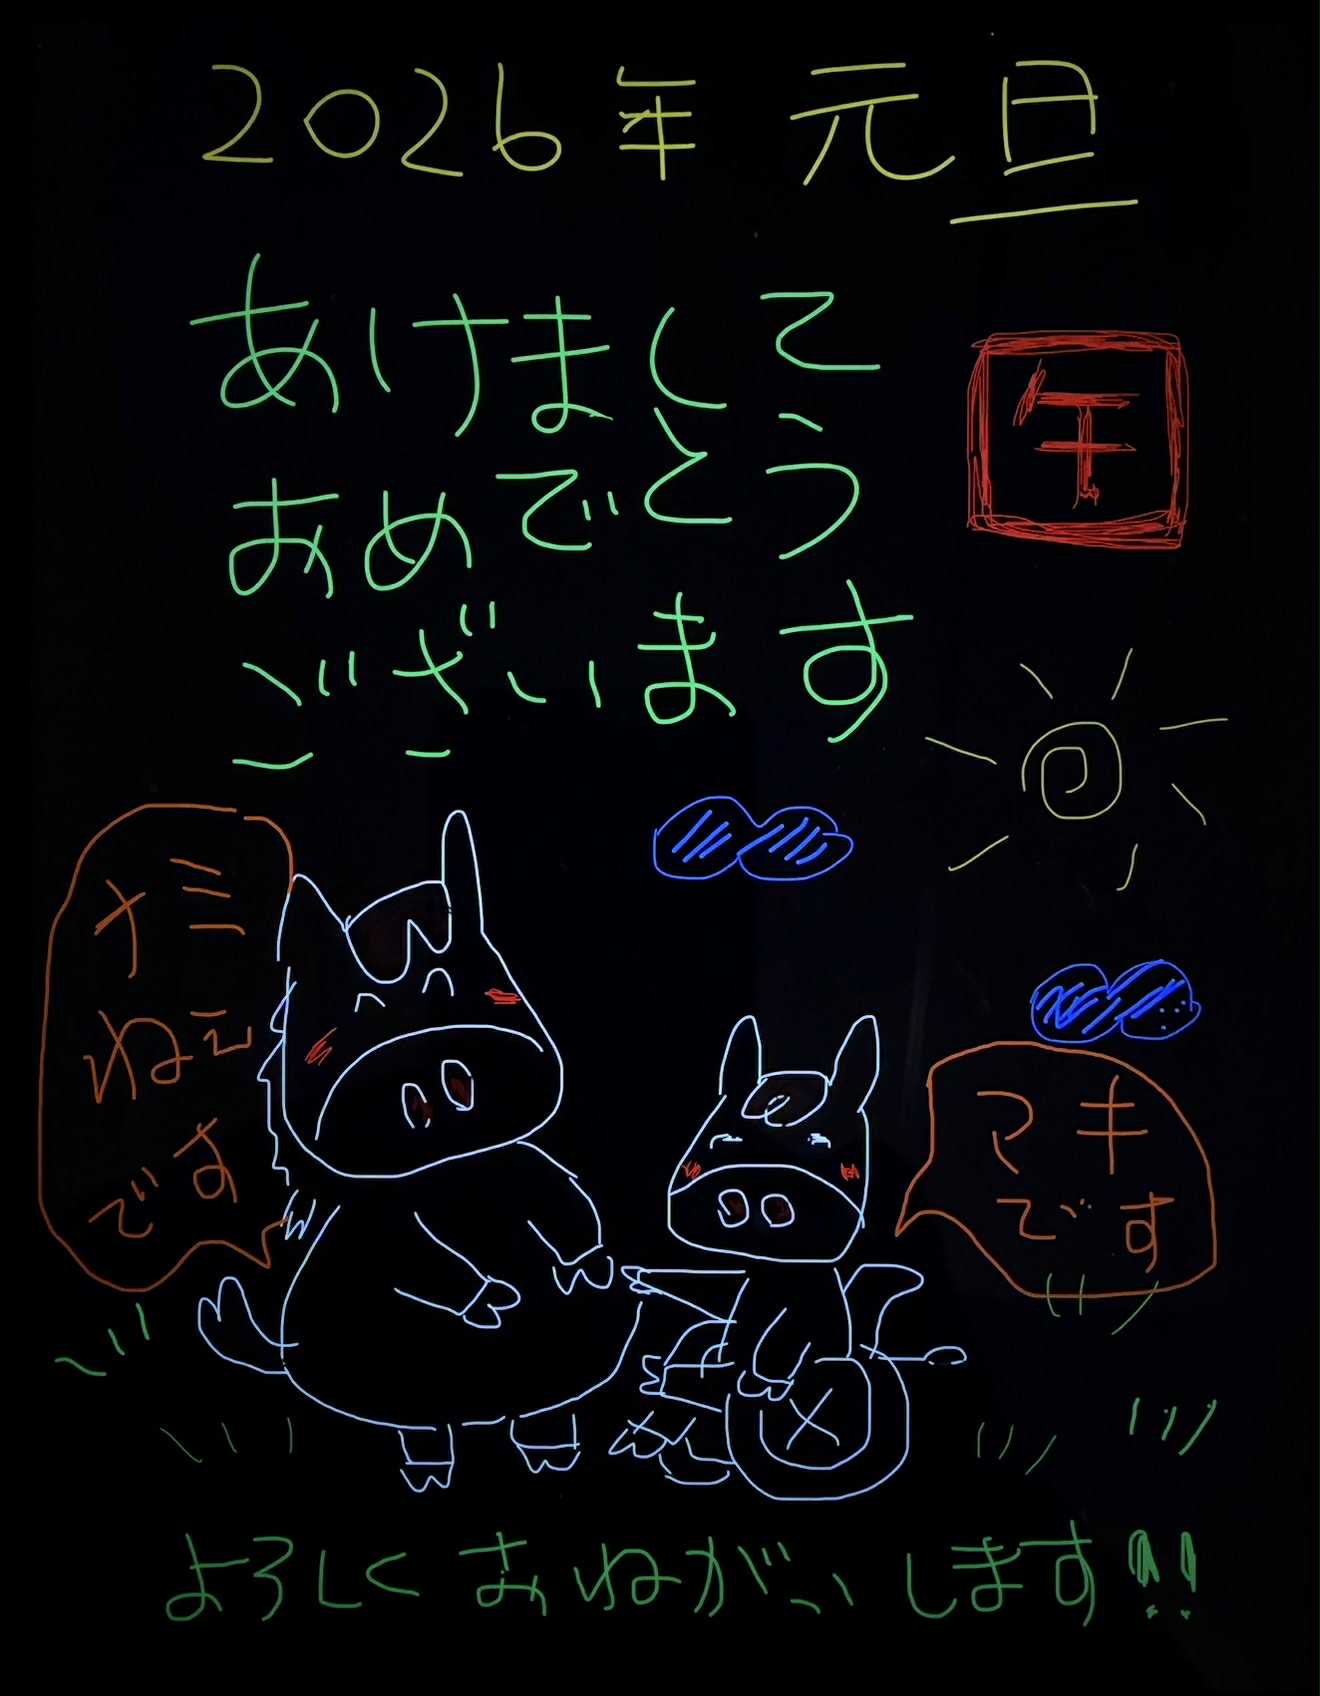 2026年 元旦
あけまして
おめでとう
ございます
午
ナミ
ねェ
です
マキ
です
よろしくおねがいします!!